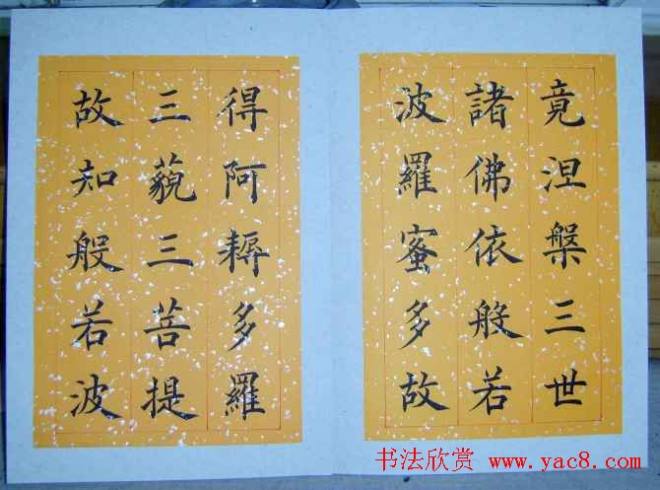 竟涅槃三世
諸佛依般若
波羅蜜多故
得阿耨多羅
三藐三菩提
故知般若波
书法欣赏 www.yac8.com